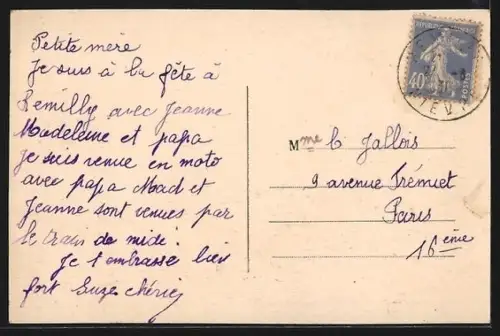 Petite mère
Je suis à la fête à
Remilly avec Jeanne
Madeleine et papa
je suis venue en moto
avec papa Mad et
Jeanne sont venues par
le train de midi.
Je t'embrasse bien
fort Suze chérie
40c
Mme L. Jallois
9 avenue Frémiet
Paris
16ème